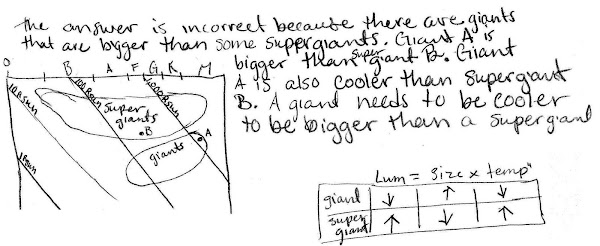 The answer is incorrect because there are giants
that are bigger than some supergiants. Giant A is
bigger than super giant B. Giant
A is also cooler than supergiant
B. A giant needs to be cooler
to be bigger than a supergiant
O B A F G K M
10 Rsun
100 Rsun
1000 Rsun
1 Rsun
Super
giants
B
A
giants
Lum = size x temp⁴
giant ↓ ↑ ↓
super
giant ↑ ↓ ↑